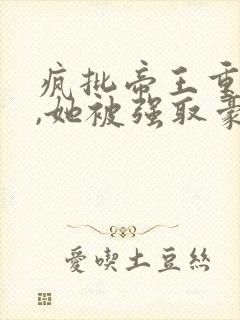 疯批帝王重
,她被强取豪
爱喫土豆丝